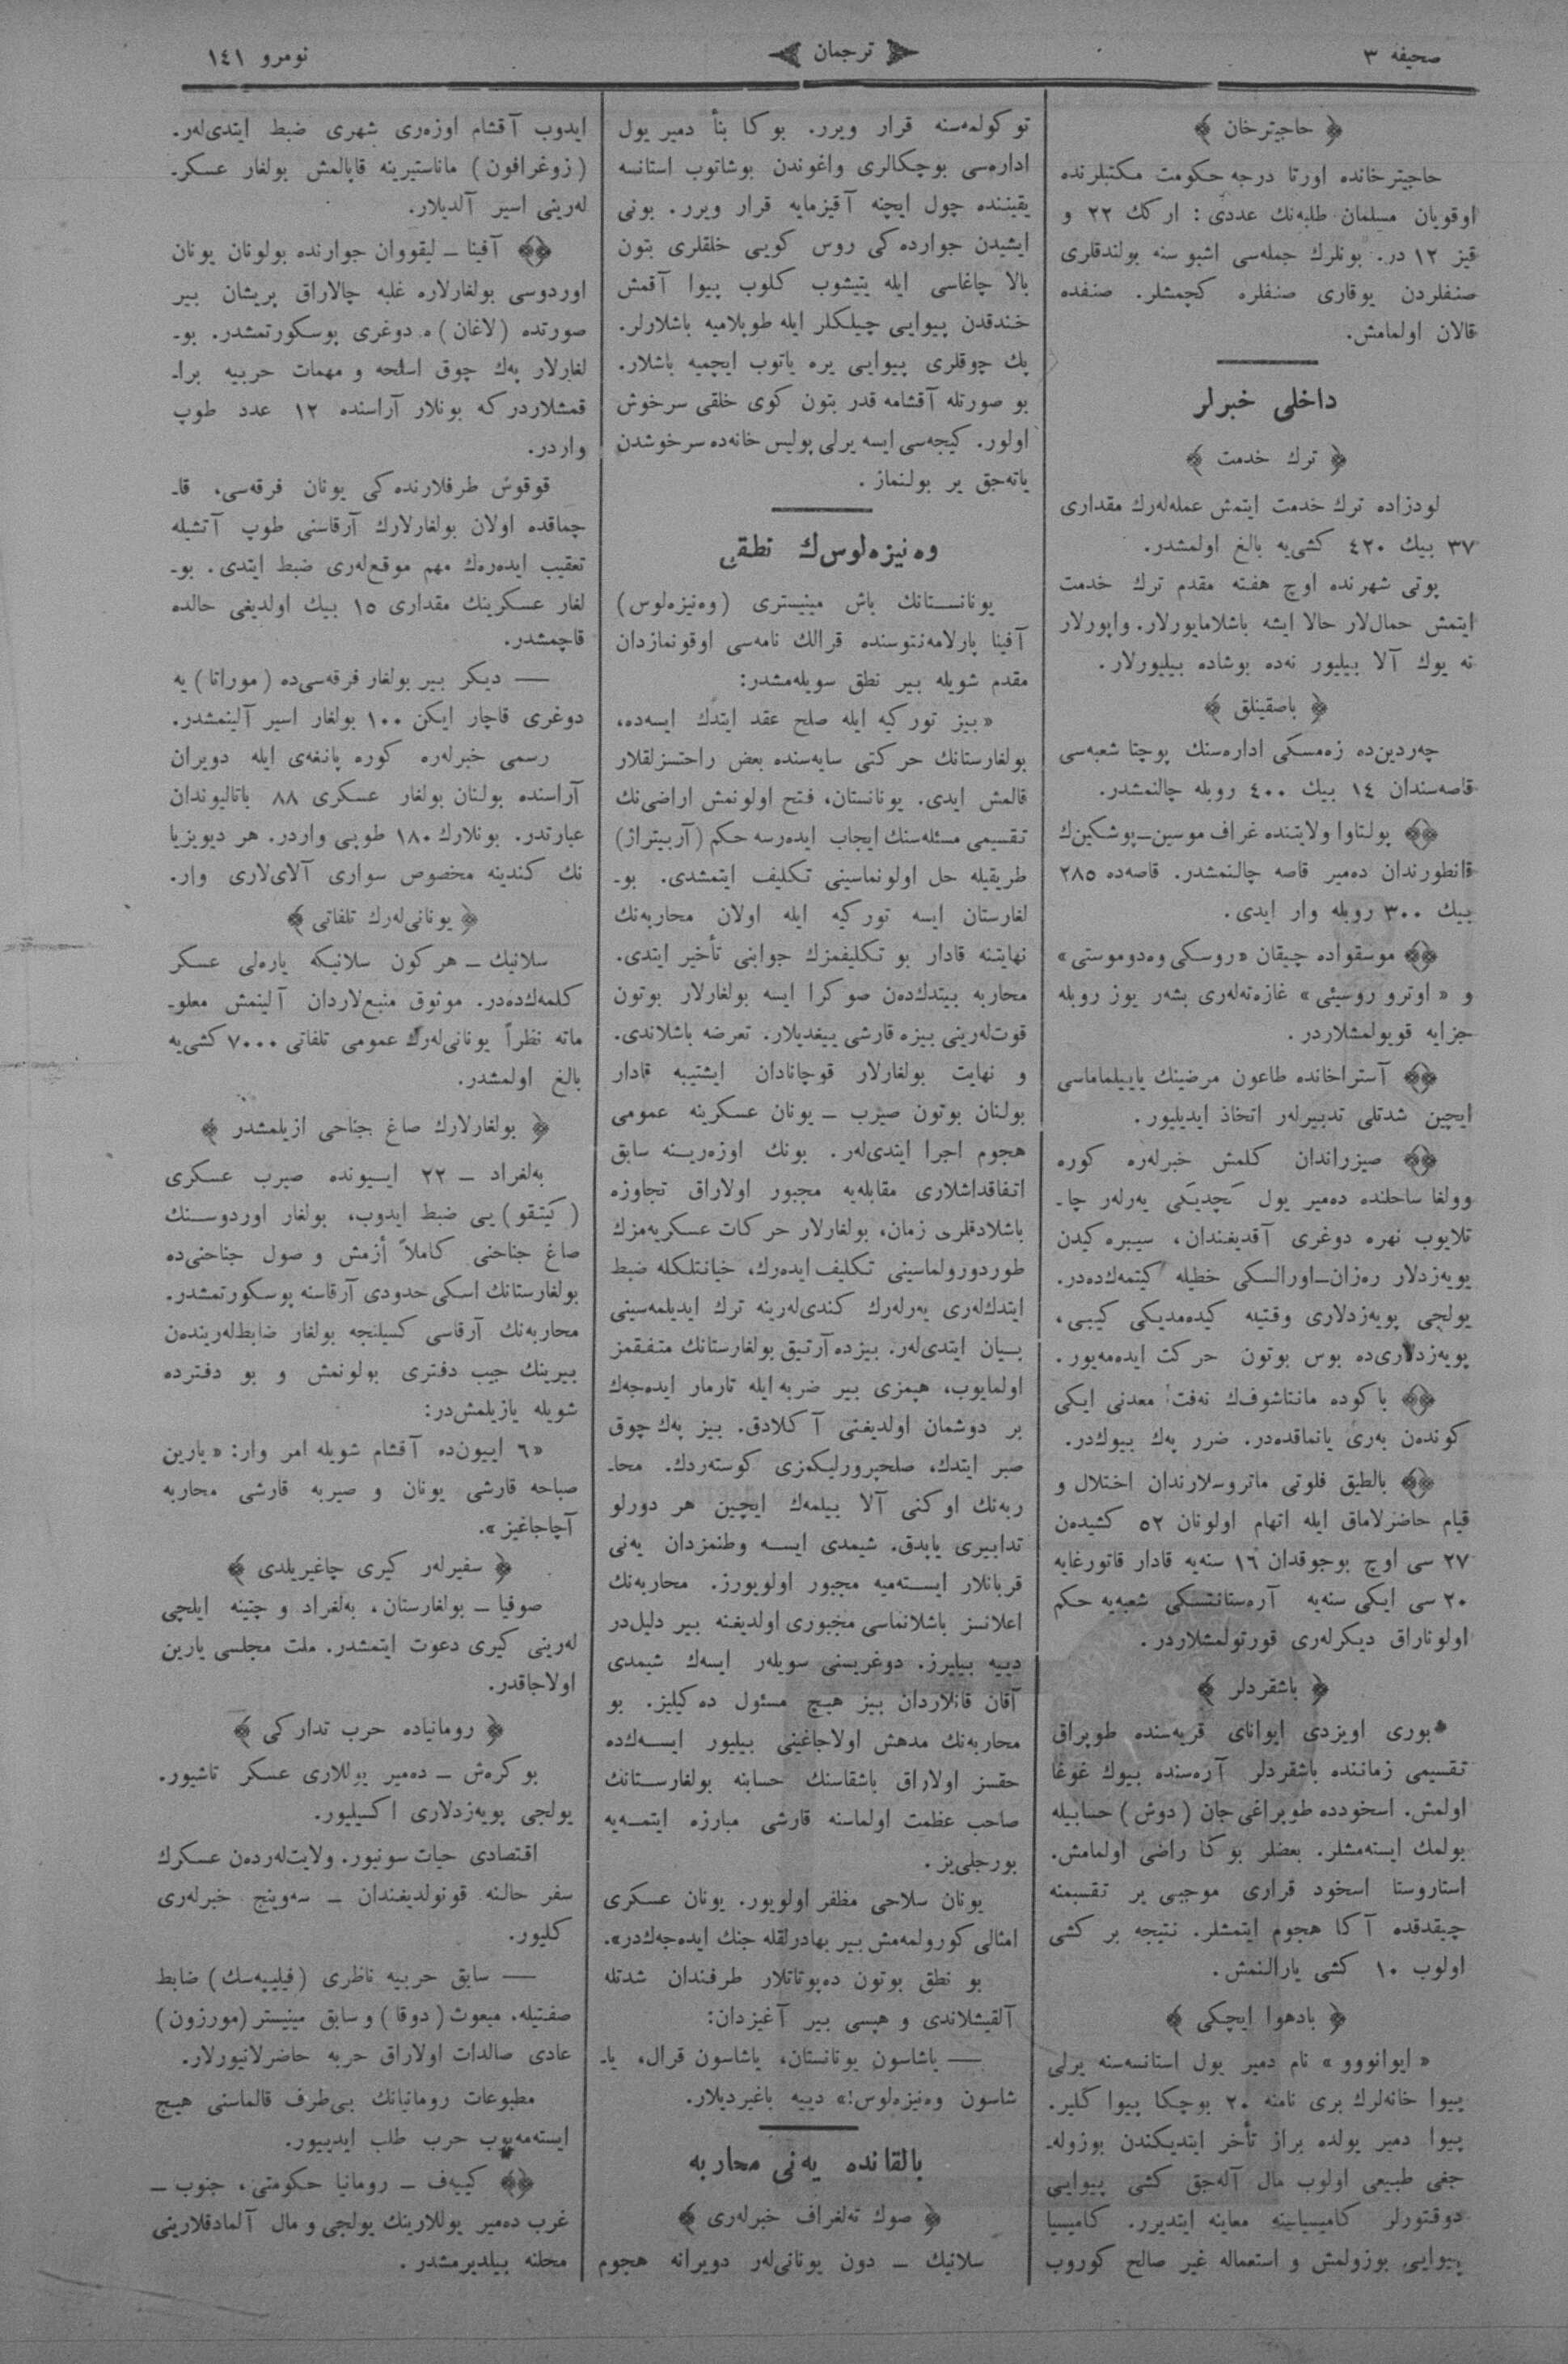 صحيفه ٣
ترجمان
نومرو ١٤١
﴿ حاجيترخان ﴾
حاجيترخانده اورتا درجه حكومت مكتبلرنده
اوقويان مسلمان طلبه‌نك عددى: اركك ٢٢ و
قيز ١٢ در. بونلرك جمله‌سى اشبو سنه بولندقلرى
صنفلردن يوقارى صنفلره كچمشلر. صنفده
قالان اولمامش.
داخلى خبرلر
﴿ ترك خدمت ﴾
لودزاده ترك خدمت ايتمش عمله‌له‌رك مقدارى
٣٧ بيك ٤٢٠ كشى‌يه بالغ اولمشدر.
پوتى شهرنده اوچ هفته مقدم ترك خدمت
ايتمش حمال‌لار حالا ايشه باشلامايورلار. واپورلار
نه يوك آلا بيليور نه‌ده بوشاده بيليورلار.
﴿ باصقينلق ﴾
چه‌ردين‌ده زه‌مسكى اداره‌سنك پوچتا شعبه‌سى
قاصه‌سندان ١٤ بيك ٤٠٠ روبله چالنمشدر.
﴿﴾ پولتاوا ولايتنده غراف موسين-پوشكين‌ك
قانطورندان ده‌مير قاصه چالنمشدر. قاصه‌ده ٢٨٥
بيك ٣٠٠ روبله وار ايدى.
﴿﴾ موسقواده چيقان «روسكى وه‌دوموستى»
و «اوترو روسيئى» غازه‌ته‌له‌رى بشه‌ر يوز روبله
جزايه قويولمشلاردر.
﴿﴾ آستراخانده طاعون مرضينك ياييلماماسى
ايچين شدتلى تدبيرله‌ر اتخاذ ايديليور.
﴿﴾ صيزراندان كلمش خبرله‌ره كوره
وولغا ساحلنده ده‌مير يول كچديكى يه‌رله‌ر چا-
تلايوب نهره دوغرى آقديغندان، سيبره كيدن
پويه‌زدلار ره‌زان-اورالسكى خطيله كيتمه‌ك‌ده‌در.
يولجى پويه‌زدلارى وقتيله كيده‌مديكى كيبى،
پويه‌زدلارى‌ده بوس بوتون حركت ايده‌مه‌يور.
﴿﴾ باكوده مانتاشوف‌ك نه‌فت معدنى ايكى
كوندن به‌رى يانماقده‌در. ضرر په‌ك بيوك‌در.
﴿﴾ بالطيق فلوتى ماتروسلارندان اختلال و
قيام حاضرلاماق ايله اتهام اولونان ٥٢ كشيدن
٢٧ سى اوچ بوجوقدان ١٦ سنه‌يه قادار قاتورغايه
٢٠ سى ايكى سنه‌يه آره‌ستانتسكى شعبه‌يه حكم
اولوناراق ديكرله‌رى قورتولمشلاردر.
﴿ باشقردلر ﴾
بورى اويزدى ايواناى قريه‌سنده طوپراق
تقسيمى زماننده باشقردلر آره‌سنده بيوك غوغا
اولمش. اسخودده طوپراغى جان (دوش) حسابيله
بولمك ايسته‌مشلر. بعضلر بوكا راضى اولمامش.
استاروستا اسخود قرارى موجبى ير تقسيمنه
چيقدقده آكا هجوم ايتمشلر. نتيجه بر كشى
اولوب ١٠ كشى يارالنمش.
﴿ بادهوا ايچكى ﴾
«ايوانووو» نام دمير يول استانسه‌سنه يرلى
پيوا خانه‌لرك برى نامنه ٢٠ بوچكا پيوا كلير.
پيوا دمير يولده براز تأخر ايتديكندن بوزوله-
جغى طبيعى اولوب مال آله‌جق كشى پيوايى
دوقتورلر كاميسياسينه معاينه ايتديرر. كاميسيا
پيوايى بوزولمش و استعماله غير صالح كوروب
توكولمه‌سنه قرار ويرر. بوكا بنأ دمير يول
اداره‌سى بوچكالرى واغوندن بوشاتوب استانسه
يقيننده چول ايچنه آقيزمايه قرار ويرر. بونى
ايشيدن جوارده‌كى روس كويى خلقلرى بتون
بالا چاغاسى ايله يتيشوب كلوب پيوا آقمش
خندقدن پيوايى چيلكلر ايله طوپلاميه باشلارلر.
پك چوقلرى پيوايى يره ياتوب ايچميه باشلار.
بو صورتله آقشامه قدر بتون كوى خلقى سرخوش
اولور. كيجه‌سى ايسه يرلى پوليس خانه‌ده سرخوشدن
ياته‌جق ير بولنماز.
وه‌نيزه‌لوس‌ك نطقى
يونانستانك باش مينيسترى (وه‌نيزه‌لوس)
آفينا پارلامه‌نتوسنده قرالك نامه‌سى اوقونمازدان
مقدم شويله بير نطق سويله‌مشدر:
«بيز توركيه ايله صلح عقد ايتدك ايسه‌ده،
بولغارستانك حركتى سايه‌سنده بعض راحتسزلقلار
قالمش ايدى. يونانستان، فتح اولونمش اراضى‌نك
تقسيمى مسئله‌سنك ايجاب ايده‌رسه حكم (آربيتراژ)
طريقيله حل اولونماسينى تكليف ايتمشدى. بو-
لغارستان ايسه توركيه ايله اولان محاربه‌نك
نهايتنه قادار بو تكليفمزك جوابنى تأخير ايتدى.
محاربه بيتدك‌ده‌ن صوكرا ايسه بولغارلار بوتون
قوت‌له‌رينى بيزه قارشى ييغديلار. تعرضه باشلاندى.
و نهايت بولغارلار قوچانادان ايشتيبه قادار
بولنان بوتون صيرب – يونان عسكرينه عمومى
هجوم اجرا ايتدى‌له‌ر. بونك اوزه‌رينه سابق
اتفاقداشلارى مقابله‌يه مجبور اولاراق تجاوزه
باشلادقلرى زمان، بولغارلار حركات عسكريه‌مزك
طوردورولماسينى تكليف ايده‌رك، خيانتلكله ضبط
ايتدك‌له‌رى يه‌رله‌رك كندى‌له‌رينه ترك ايديلمه‌سينى
بيان ايتدى‌له‌ر. بيزده آرتيق بولغارستانك متفقمز
اولمايوب، هپمزى بير ضربه ايله تارمار ايده‌جه‌ك
بر دوشمان اولديغنى آكلادق. بيز په‌ك چوق
صبر ايتدك، صلحپرورليكمزى كوسته‌ردك. محا-
ربه‌نك اوكنى آلا بيلمه‌ك ايچين هر دورلو
تدابيرى ياپدق. شيمدى ايسه وطنمزدان يه‌نى
قربانلار ايسته‌ميه مجبور اولويورز. محاربه‌نك
اعلانسز باشلانماسى مجبورى اولديغنه بير دليل‌در
دييه بيليرز. دوغريسنى سويله‌ر ايسه‌ك شيمدى
آقان قانلاردان بيز هيچ مسئول ده‌كيليز. بو
محاربه‌نك مدهش اولاجاغينى بيليور ايسه‌ك‌ده
حقسز اولاراق باشقاسنك حسابنه بولغارستانك
صاحب عظمت اولماسنه قارشى مبارزه ايتمه‌يه
بورجلى‌يز.
يونان سلاحى مظفر اولويور. يونان عسكرى
امثالى كورولمه‌مش بير بهادرلقله جنك ايده‌جه‌ك‌در».
بو نطق بوتون ده‌پوتاتلار طرفندان شدتله
آلقيشلاندى و هپسى بير آغيزدان:
— ياشاسون يونانستان، ياشاسون قرال، يا-
شاسون وه‌نيزه‌لوس!» دييه باغيرديلار.
بالقانده يه‌نى محاربه
﴿ صوك ته‌لغراف خبرله‌رى ﴾
سلانيك – دون يونانى‌له‌ر دويرانه هجوم
ايدوب آقشام اوزه‌رى شهرى ضبط ايتدى‌له‌ر.
(زوغرافون) ماناستيرينه قاپالمش بولغار عسكر-
له‌رينى اسير آلديلار.
﴿﴾ آفينا – ليقووان جوارنده بولونان يونان
اوردوسى بولغارلاره غلبه چالاراق پريشان بير
صورتده (لاغان)ه دوغرى پوسكورتمشدر. بو-
لغارلار په‌ك چوق اسلحه و مهمات حربيه برا-
قمشلاردركه بونلار آراسنده ١٢ عدد طوپ
واردر.
قوقوش طرفلارنده‌كى يونان فرقه‌سى، قا-
چماقده اولان بولغارلارك آرقاسنى طوپ آتشيله
تعقيب ايده‌ره‌ك مهم موقع‌له‌رى ضبط ايتدى. بو-
لغار عسكرينك مقدارى ١٥ بيك اولديغى حالده
قاچمشدر.
— ديكر بير بولغار فرقه‌سى‌ده (موراتا)يه
دوغرى قاچار ايكن ١٠٠ بولغار اسير آلينمشدر.
رسمى خبرله‌ره كوره پانغه‌ى ايله دويران
آراسنده بولنان بولغار عسكرى ٨٨ باتاليوندان
عبارتدر. بونلارك ١٨٠ طوپى واردر. هر ديويزيا
نك كندينه مخصوص سوارى آلاى‌لارى وار.
﴿ يونانى‌له‌رك تلفاتى ﴾
سلانيك – هر كون سلانيكه ياره‌لى عسكر
كلمه‌ك‌ده‌در. موثوق منبع‌لاردان آلينمش معلو-
ماته نظراً يونانى‌له‌رك عمومى تلفاتى ٧٠٠٠ كشى‌يه
بالغ اولمشدر.
﴿ بولغارلارك صاغ جناحى ازيلمشدر ﴾
به‌لغراد – ٢٢ اييونده صيرب عسكرى
(كيتقو)يى ضبط ايدوب، بولغار اوردوسنك
صاغ جناحنى كاملاً أزمش و صول جناحنى‌ده
بولغارستانك اسكى حدودى آرقاسنه پوسكورتمشدر.
محاربه‌نك آرقاسى كسيلنجه بولغار ضابطله‌رينده‌ن
بيرينك جيب دفترى بولونمش و بو دفترده
شويله يازيلمش‌در:
«٦ اييون‌ده آقشام شويله امر وار: «يارين
صباحه قارشى يونان و صيربه قارشى محاربه
آچاجاغيز».
﴿ سفيرله‌ر كيرى چاغيريلدى ﴾
صوفيا – بولغارستان، به‌لغراد و چتينه ايلچى
له‌رينى كيرى دعوت ايتمشدر. ملت مجلسى يارين
اولاجاقدر.
﴿ رومانياده حرب تداركى ﴾
بوكره‌ش – ده‌مير يوللارى عسكر تاشيور.
يولجى پويه‌زدلارى اكسيليور.
اقتصادى حيات سونيور. ولايت‌له‌رده‌ن عسكرك
سفر حالنه قونولديغندان – سه‌وينج خبرله‌رى
كليور.
— سابق حربيه ناظرى (فيليپه‌سك) ضابط
صفتيله. مبعوث (دوقا) و سابق مينيستر (مورزون)
عادى صالدات اولاراق حربه حاضرلانيورلار.
مطبوعات رومانيانك بى‌طرف قالماسنى هيچ
ايسته‌مه‌يوب حرب طلب ايدييور.
﴿﴾ كييه‌ف – رومانيا حكومتى، جنوب –
غرب ده‌مير يوللارينك يولجى و مال آلمادقلارينى
محلنه بيلديرمشدر.